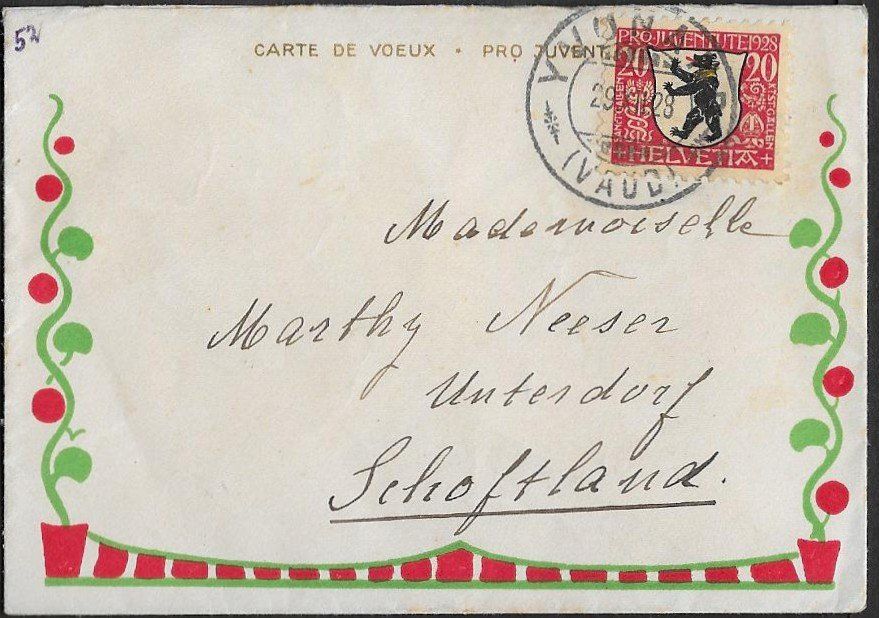 52
CARTE DE VOEUX · PRO JUVENT
PRO JUVENTUTE 1928
20 20
HELVETIA +
29. 28
(VAUD)
Mademoiselle
Marthy Neeser
Unterdorf
Schoftland.